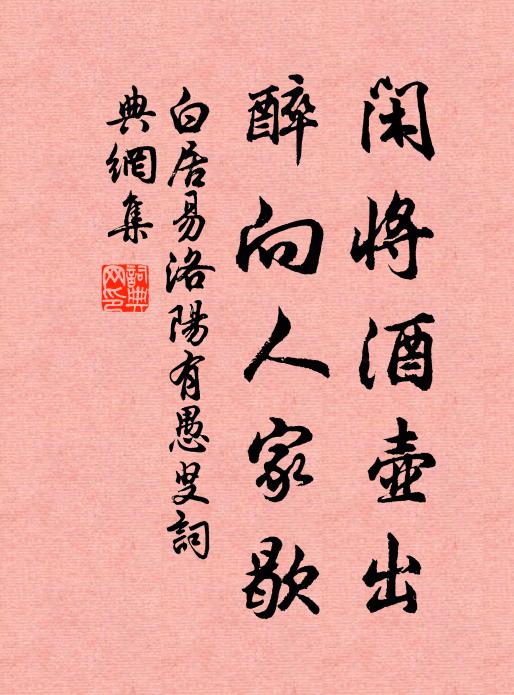 闲將酒壺出
醉向人家歇
白居易洛陽有愚叟詞
典網集
詞典網印